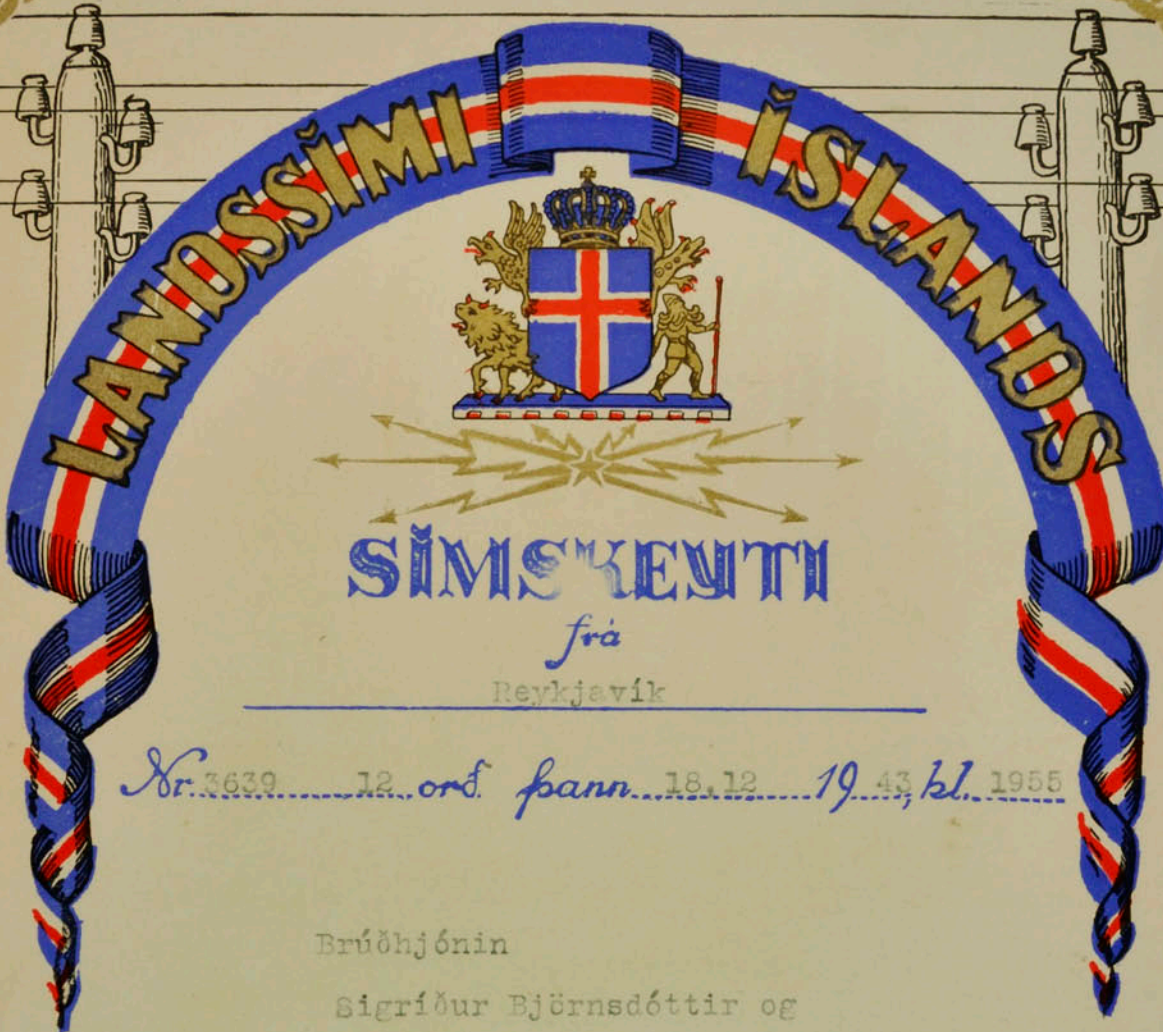 LANDSSÍMI ÍSLANDS
SÍMSKEYTI
frá
Reykjavík
Nr. 3639 12 orð. þann 18.12 19 43, kl. 1955
Brúðhjónin
Sigríður Björnsdóttir og